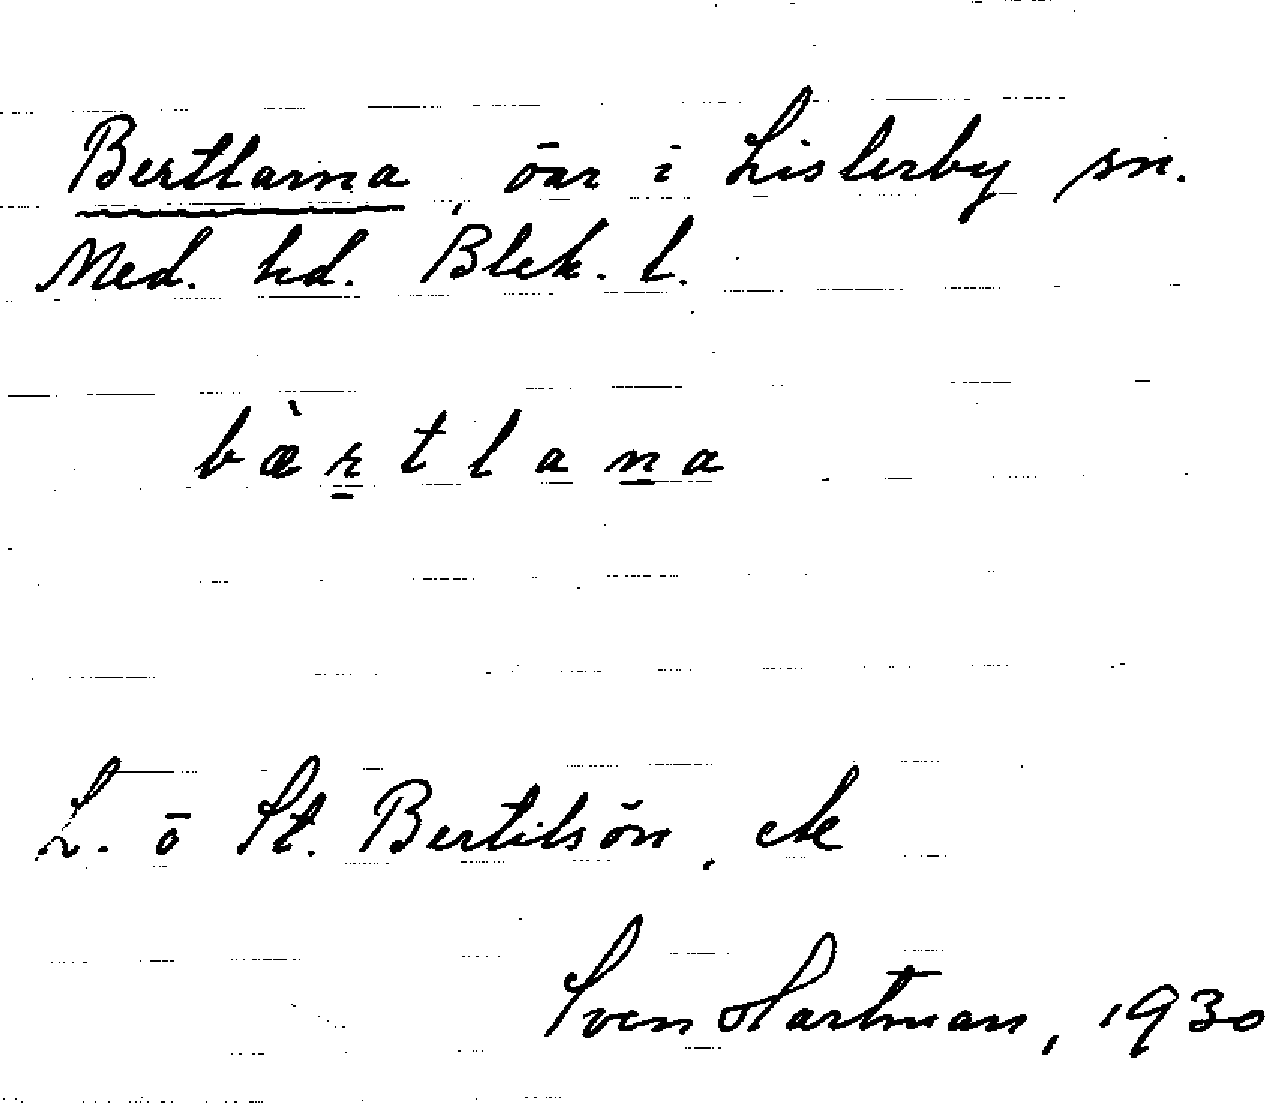 Bertlarna, öar i Listerby sn.
Med. hd. Blek. l.
bæ̀rtlana
L. o St. Bertilsön, ek
Sven Hartman, 1930